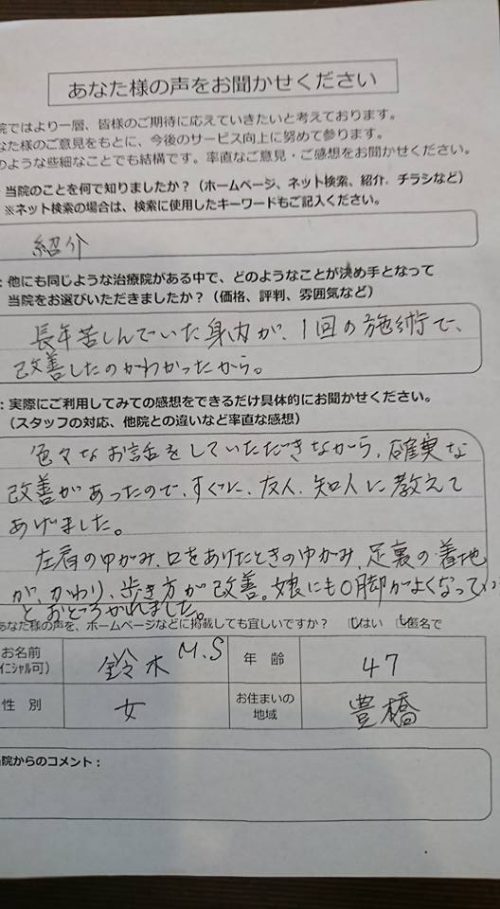 あなた様の声をお聞かせください
院ではより一層、皆様のご期待に応えていきたいと考えております。
なた様のご意見をもとに、今後のサービス向上に努めて参ります。
のような些細なことでも結構です。率直なご意見・ご感想をお聞かせください。
:当院のことを何で知りましたか？（ホームページ、ネット検索、紹介、チラシなど）
※ネット検索の場合は、検索に使用したキーワードもご記入ください。
紹介
:他にも同じような治療院がある中で、どのようなことが決め手となって
当院をお選びいただきましたか？（価格、評判、雰囲気など）
長年苦しんでいた身内が、1回の施術で、
改善したのがわかったから。
:実際にご利用してみての感想をできるだけ具体的にお聞かせください。
（スタッフの対応、他院との違いなど率直な感想）
色々なお話をしていただきながら、確実な
改善があったので、すぐに、友人、知人に教えて
あげました。
左右のゆがみ、口をあけたときのゆがみ、足裏の着地
が、かわり、歩き方が改善。娘にもO脚がよくなってい
とおどろかれました。
あなた様の声を、ホームページなどに掲載しても宜しいですか？ はい 匿名で
お名前 鈴木 M.S 年 齢 47
イニシャル可）
性 別 女 お住まいの地域 豊橋
当院からのコメント：